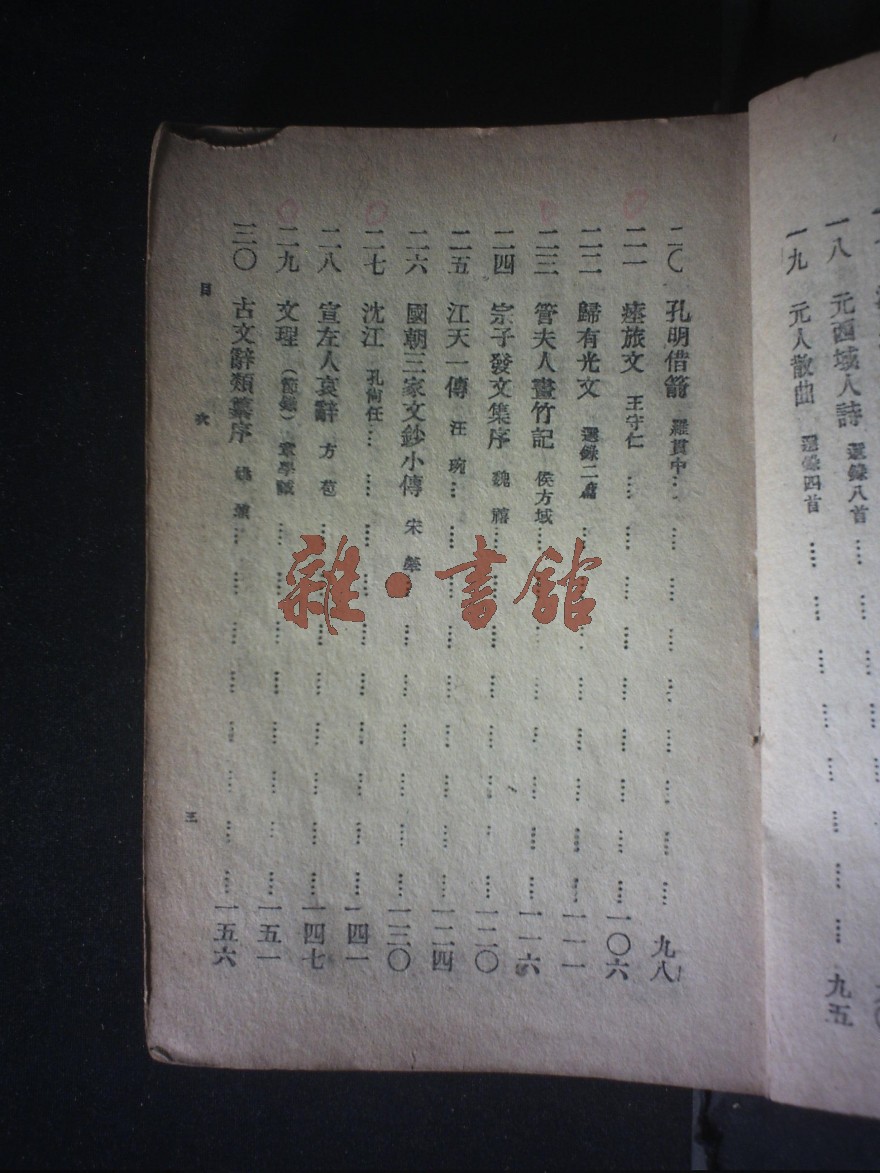 一八 元西域人詩 選錄八首
九五
一九 元人散曲 選錄四首
二〇 孔明借箭 羅貫中 九八
二一 瘞旅文 王守仁 一〇六
二二 歸有光文 選錄二篇 一一一
二三 管夫人畫竹記 侯方域 一一六
二四 宗子發文集序 魏禧 一二〇
二五 江天一傳 汪琬 一二四
二六 國朝三家文鈔小傳 宋犖 一三〇
二七 沈江 孔尚任 一四一
二八 宣左人哀辭 方苞 一四七
二九 文理（節錄） 章學誠 一五一
三〇 古文辭類纂序 姚鼐 一五六
目次
三
雜·書館